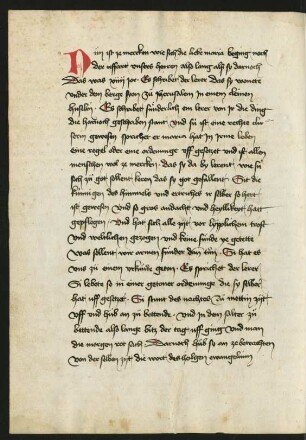 Nun ist ze mercken wie sich die liebe maria beging noch
der uffart unsers herren also lang alß sy darnoch
Das was xiiii jor Es schribet der lerer das sy wonete
under dem berge syon zu jherusalem in einem cleinen
huselin Es schribet sunderlich ein lerer von ir die ding
die harnoch geschriben stant und sú ist eine rechte
gewesen sprichet er maria hat in irme leben
eine regel oder eine ordenunge uff gesetzet und ist allen
menschen not ze mercken das sy do by lerent wie sú
sich zu got sollent keren das sy got gefallent Sit die
kúnnigin des himmels und ertriches ir selber so hert
ist gewesen und so gros andacht und heyllikeit hatt
gepflogen Und hat sich alle zyt von lyplichem trost
und weltlichen gezogen und keine súnde ye getette
was sollent wir armen súnder den tún Sú hat es
uns zu einem urkunde geton Es sprichet der lerer
Si lebete so in einer getoner ordenunge die sy selber
hat uff gesetzet Si stunt des nachtes zu mettin zyt
uff und hub an zu bettende und in dem salter zu
bettende also lange bitz der tag uff ging und man
die morgen rot sach Darnoch hub sy an ze betrachten
von der selben zyt die wort des heilgen ewangeliums